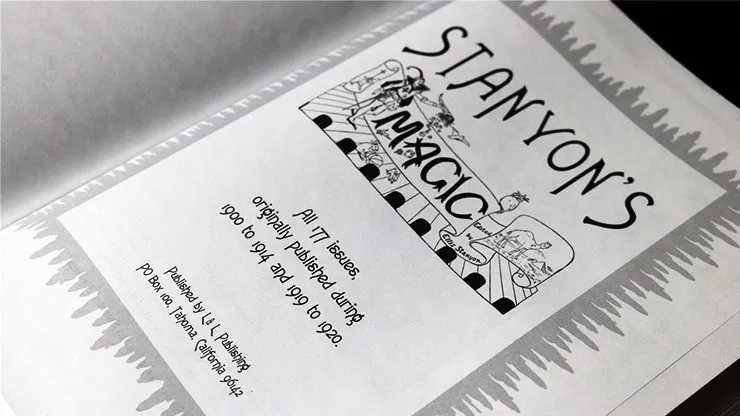 STANYON'S
MAGIC
Edited
by
Ellis Stanyon
All 177 issues,
originally published during
1900 to 1914 and 1919 to 1920.
Published by L & L Publishing
PO Box 100, Tahoma, California 96142